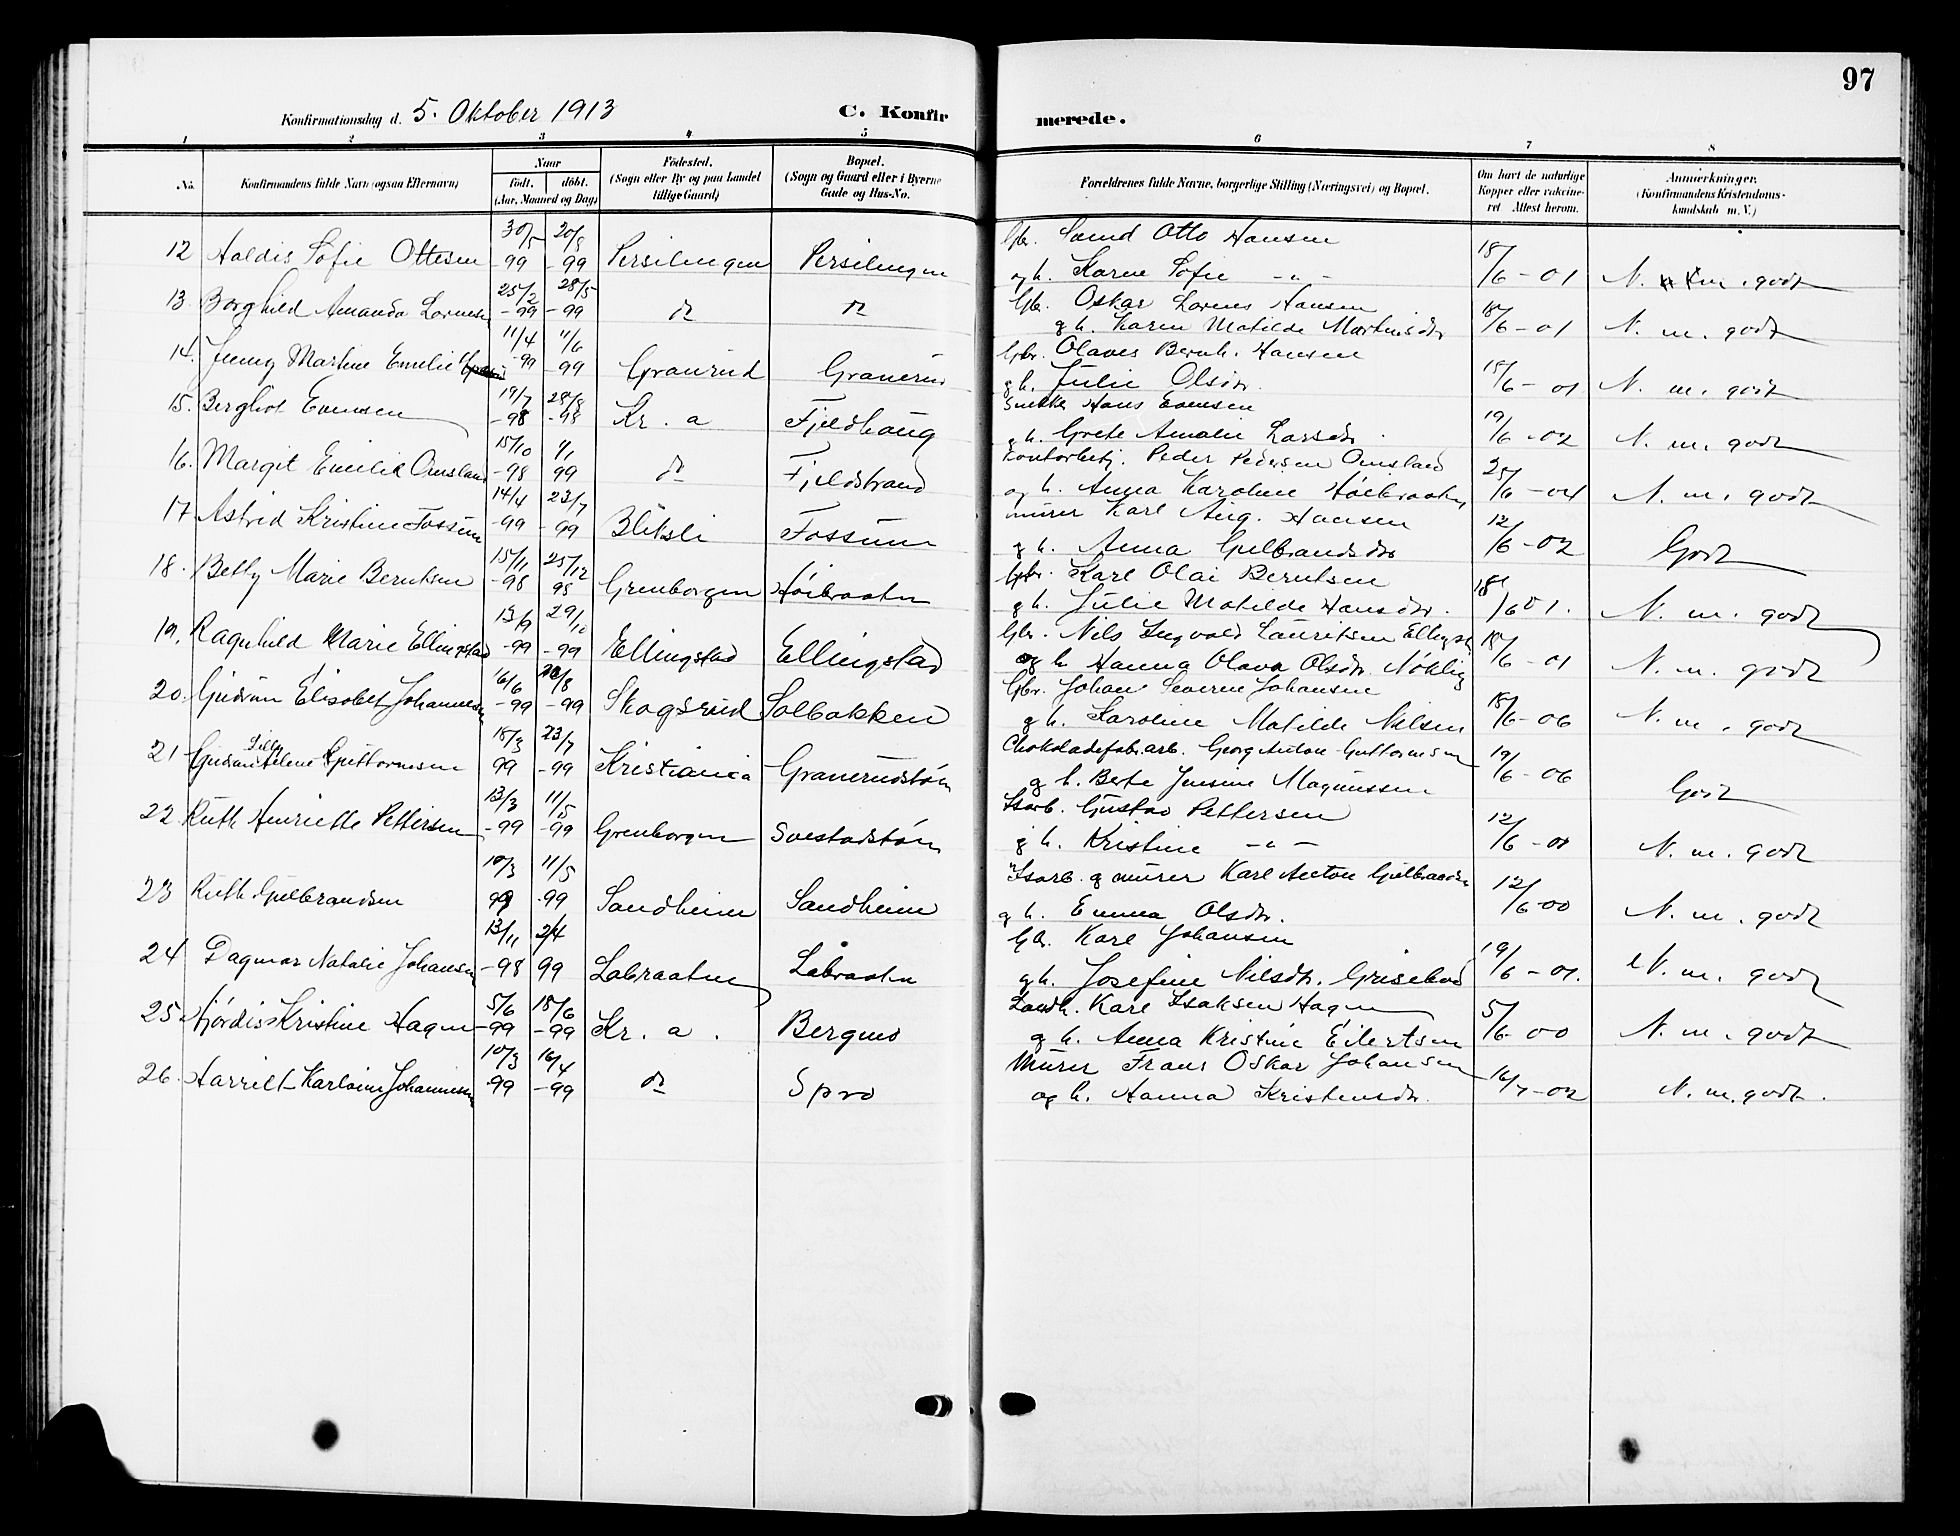 97
Konfirmationsdag d. 5. Oktober 1913
C. Konfirmerede.
1 2 3 4 5 6 7 8
No. Konfirmandens fulde Navn (ogsaa Efternavn) Naar født. døbt. (Aar, Maaned og Dag) Födested. (Sogn eller By og paa Landet tillige Gaard) Bopæl. (Sogn og Gaard eller i Byerne Gade og Hus-No. Forældrenes fulde Navne, borgerlige Stilling (Næringsvei) og Bopæl. Om havt de naturlige Kopper eller vakcineret Attest herom. Anmærkninger. (Konfirmandens Kristendomskundskab m. V.)
12 Aaldis Sofie Ottesen 30/5 -99 20/8 -99 Persilengen Persilengen Gbr. Otto Hansen
og h. Karen Sofie -"- 18/6 - 01 N. m. godt
13. Borghild Amanda Lornesen 25/2 -99 28/5 -99 do do Gbr. Oskar Lornes Hansen
g h. Karen Matilde Martinsdr 18/6 - 01 N. m. godt
14. Jenny Martine Emelie 11/4 -99 11/6 99 Granerud Granerud Gbr. Olaves Bernh. Hansen
g h. Julie Olsdr. 18/6 - 01 N. m. godt
15. Bergliot Evensen 19/7 -98 28/8 -98 Kr. a Fjeldhaug Snekker Hans Evensen
g h. Grete Amalie Larsdr. 19/6 - 02 N. m. godt
16. Margit Emilie Omsland 15/10 -98 1/1 99 do Fjeldstrand Kontorbetj. Peder Pedersen Omsland
og h. Anna Karoline Høibraaten 25/6 - 04 N. m. godt
17. Astrid Kristine Fossum 14/4 -99 23/7 -99 Bliksli Fossum murer Karl Aug. Hansen
g h. Anna Gulbrandsdr 12/6 - 02 Godt
18. Betty Marie Berntsen 15/11 -98 25/12 98 Grenborgen Høibraaten Gbr. Karl Olai Berntsen
g h. Julie Matilde Hansdr. 18/6 01. N. m. godt
19. Ragnhild Marie Ellingstad 13/9 -99 29/10 -99 Ellingstad Ellingstad Gbr. Nils Ingvald Lauritsen
og h Hanna Olava Olsdr. Nökleg 18/6 - 01 N. m. godt
20. Gudrun Elisabet Johannesen 16/6 -99 20/8 -99 Skogsrud Solbakken Gbr. Johan Severin Johansen
g h. Karoline Matilde Nilsen 18/6 - 06 N. m. godt
21 Gudrun Lilly Helene Guttormsen 18/3 99 23/7 -99 Kristiania Granerudstøen Chokoladefabr.arb. Georg Anton Guttormsen
g h. Berte Jensine Magnussen 19/6 - 06 Godt
22. Ruth Henriette Pettersen 13/3 -99 11/5 -99 Grenborgen Svestadstøen Isarb. Gustav Pettersen
g h. Kristine -"- 12/6 - 01 N. m. godt
23 Ruth Gulbrandsen 19/3 99 11/5 99 Sandheim Sandheim Isarb. g murer Karl Anton Gulbrandsen
g h. Emma Olsdr. 12/6 - 00 N. m. godt
24 Dagmar Natalie Johansen 13/11 -98 2/4 99 Labraaten Labraaten Gbr. Karl Johansen
g h. Josefine Nilsdr. Grisebod 19/6 - 01. N. m. godt
25. Hjørdis Kristine Hagen 5/6 -99 18/6 -99 Kr. a. Bergmo Landh. Karl Isaksen Hagen
g h. Anna Kristine Eilertsen 5/6 - 00 N. m. godt
26. Harriet Karloine Johannesen 10/3 99 16/4 -99 do Spro Murer Frans Oskar Johansen
og h. Hanna Kristensdr. 16/7 - 02 N. m. godt.